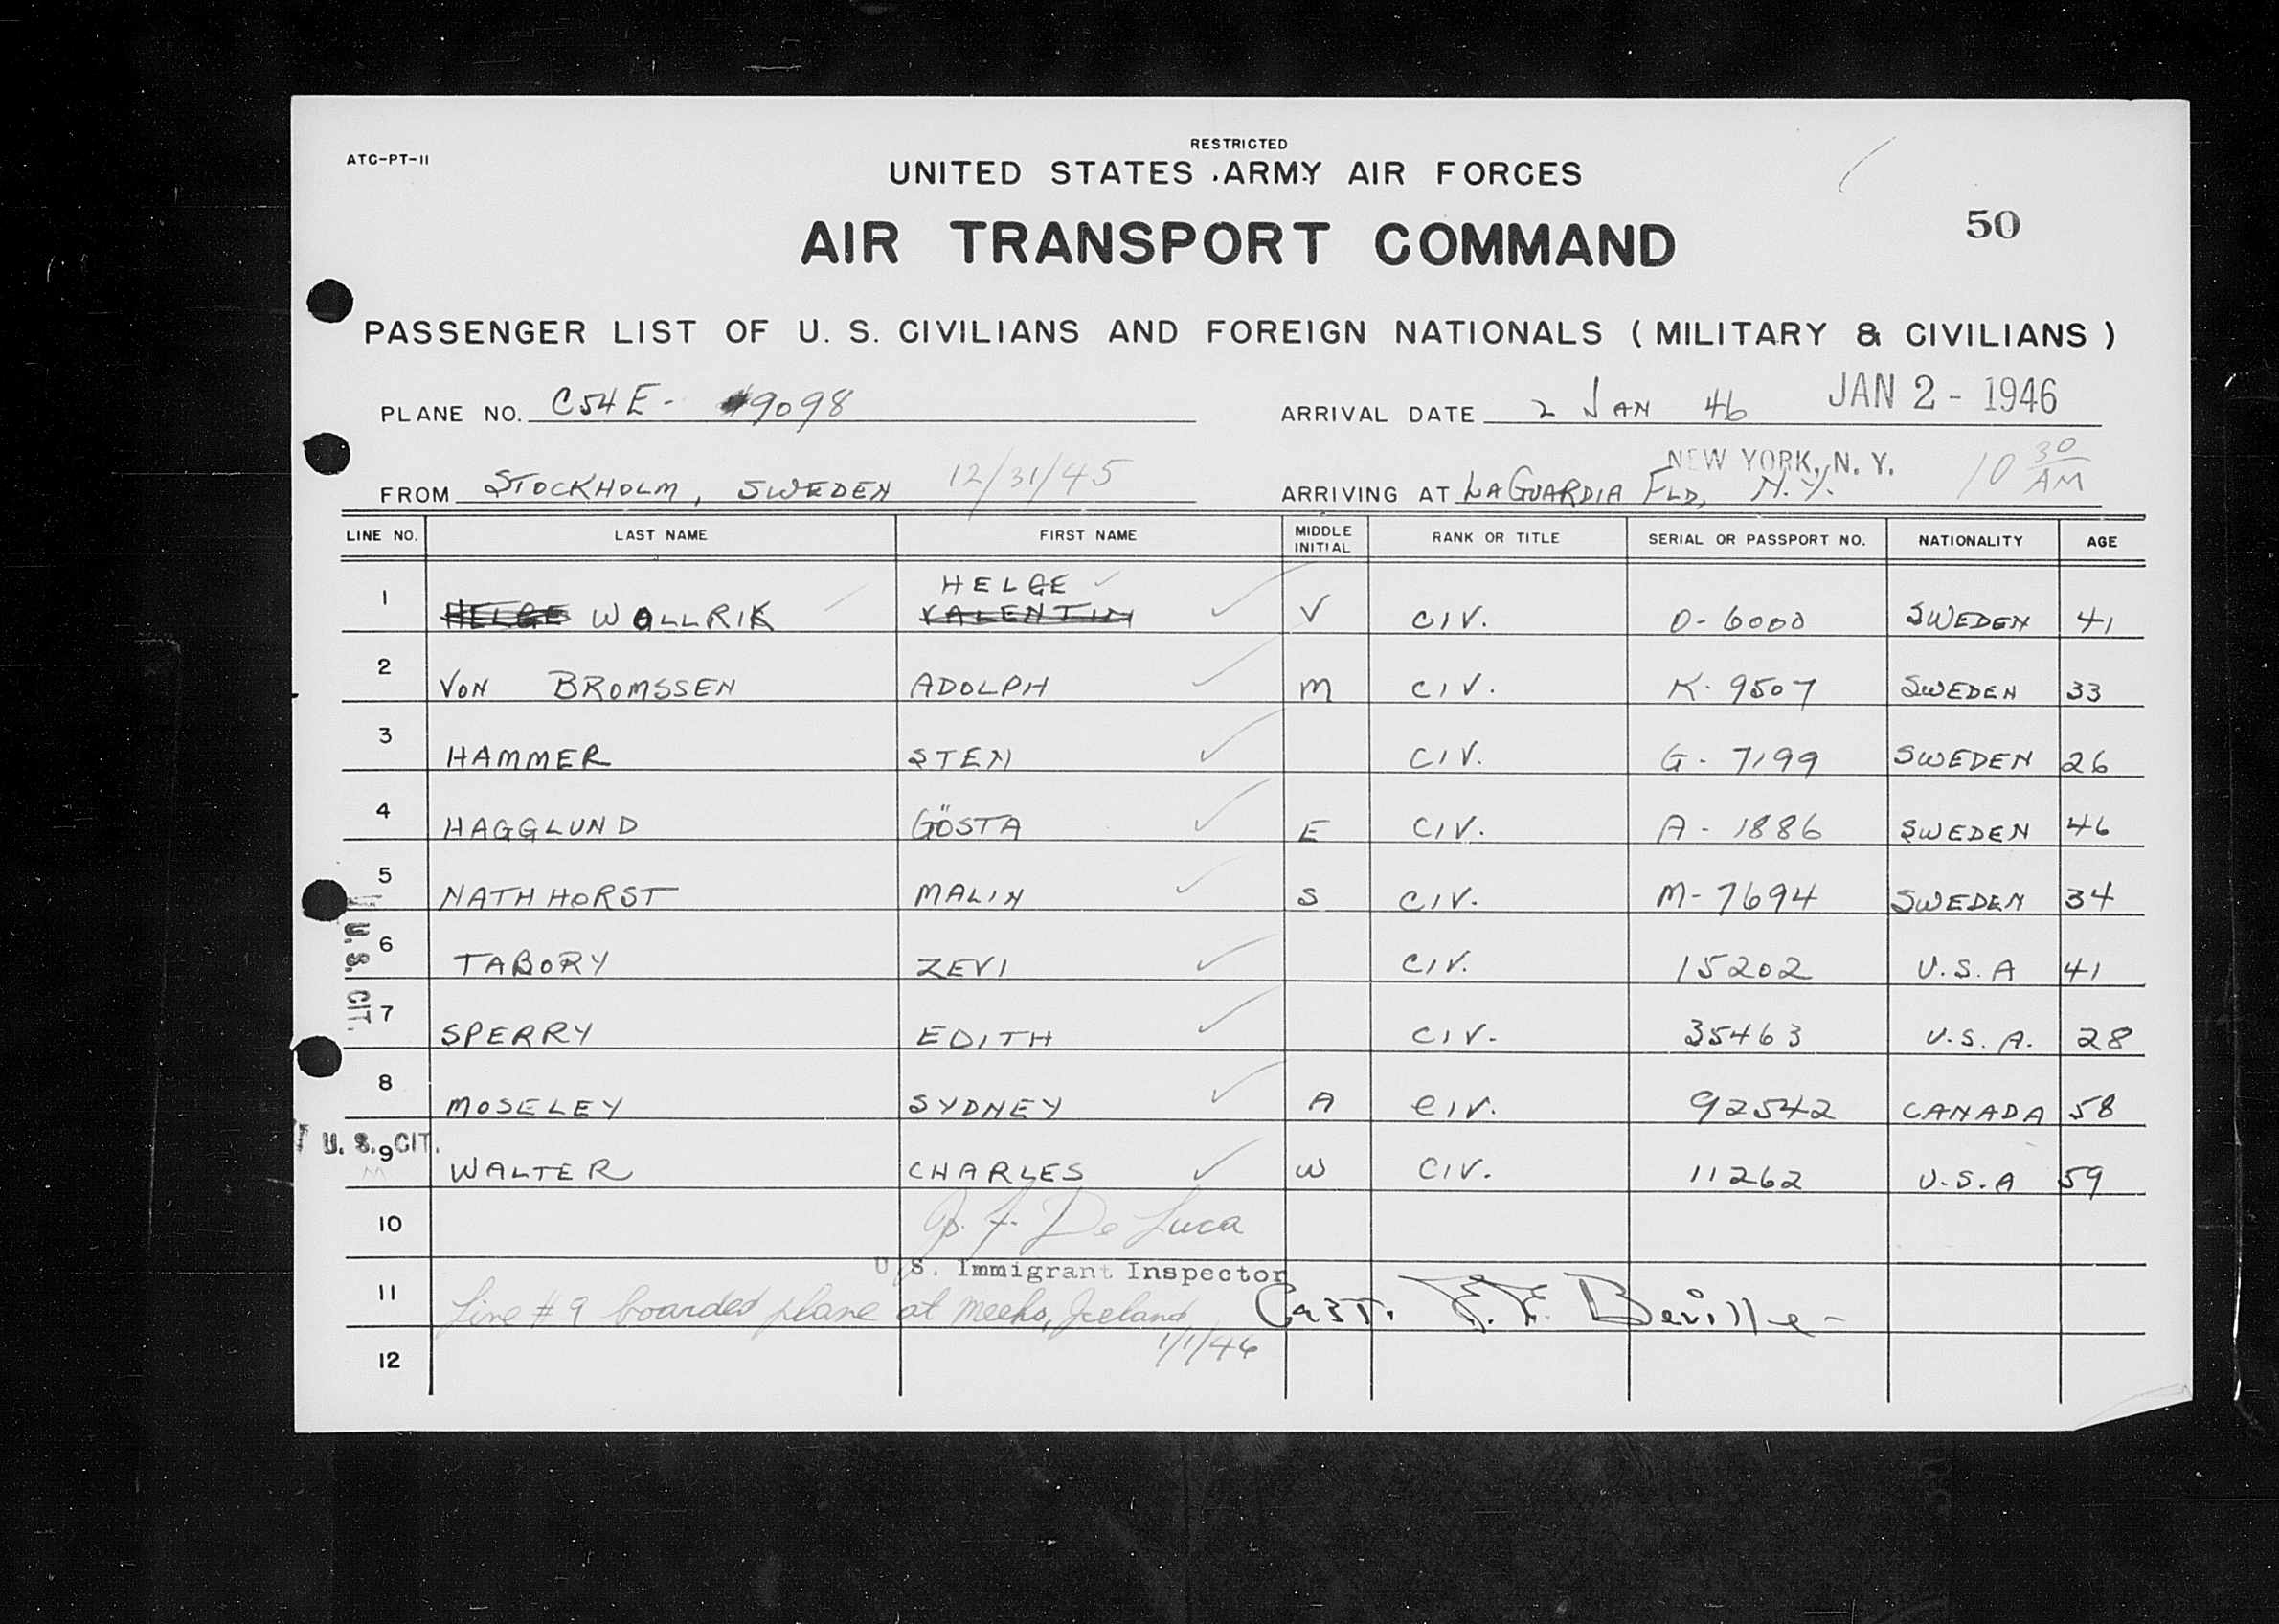 RESTRICTED
ATC-PT-11
UNITED STATES ARMY AIR FORCES
AIR TRANSPORT COMMAND
50
PASSENGER LIST OF U. S. CIVILIANS AND FOREIGN NATIONALS ( MILITARY & CIVILIANS )
PLANE NO. C54E- 49098 ARRIVAL DATE 2 JAN 46 JAN 2 - 1946
NEW YORK, N. Y. 10 30 AM
FROM STOCKHOLM, SWEDEN 12/31/45 ARRIVING AT LAGUARDIA FLD, N.Y.
LINE NO. LAST NAME FIRST NAME MIDDLE INITIAL RANK OR TITLE SERIAL OR PASSPORT NO. NATIONALITY AGE
HELGE
1 HELGE WALLRIK VALENTIN V CIV. O-6000 SWEDEN 41
2 VON BROMSSEN ADOLPH M CIV. K-9507 SWEDEN 33
3 HAMMER STEN CIV. G-7199 SWEDEN 26
4 HAGGLUND GÖSTA E CIV. A-1886 SWEDEN 46
5 NATHHORST MALIN S CIV. M-7694 SWEDEN 34
U. S. CIT.
6 TABORY ZEVI CIV. 15202 U.S.A 41
7 SPERRY EDITH CIV. 35463 U.S.A. 28
8 MOSELEY SYDNEY A CIV. 92542 CANADA 58
U. S. CIT.
9 WALTER CHARLES W CIV. 11262 U.S.A 59
10 De Luca
U. S. Immigrant Inspector
11 Line # 9 boarded plane at Meeks, Iceland Capt. F. F. Beville
1/1/46
12